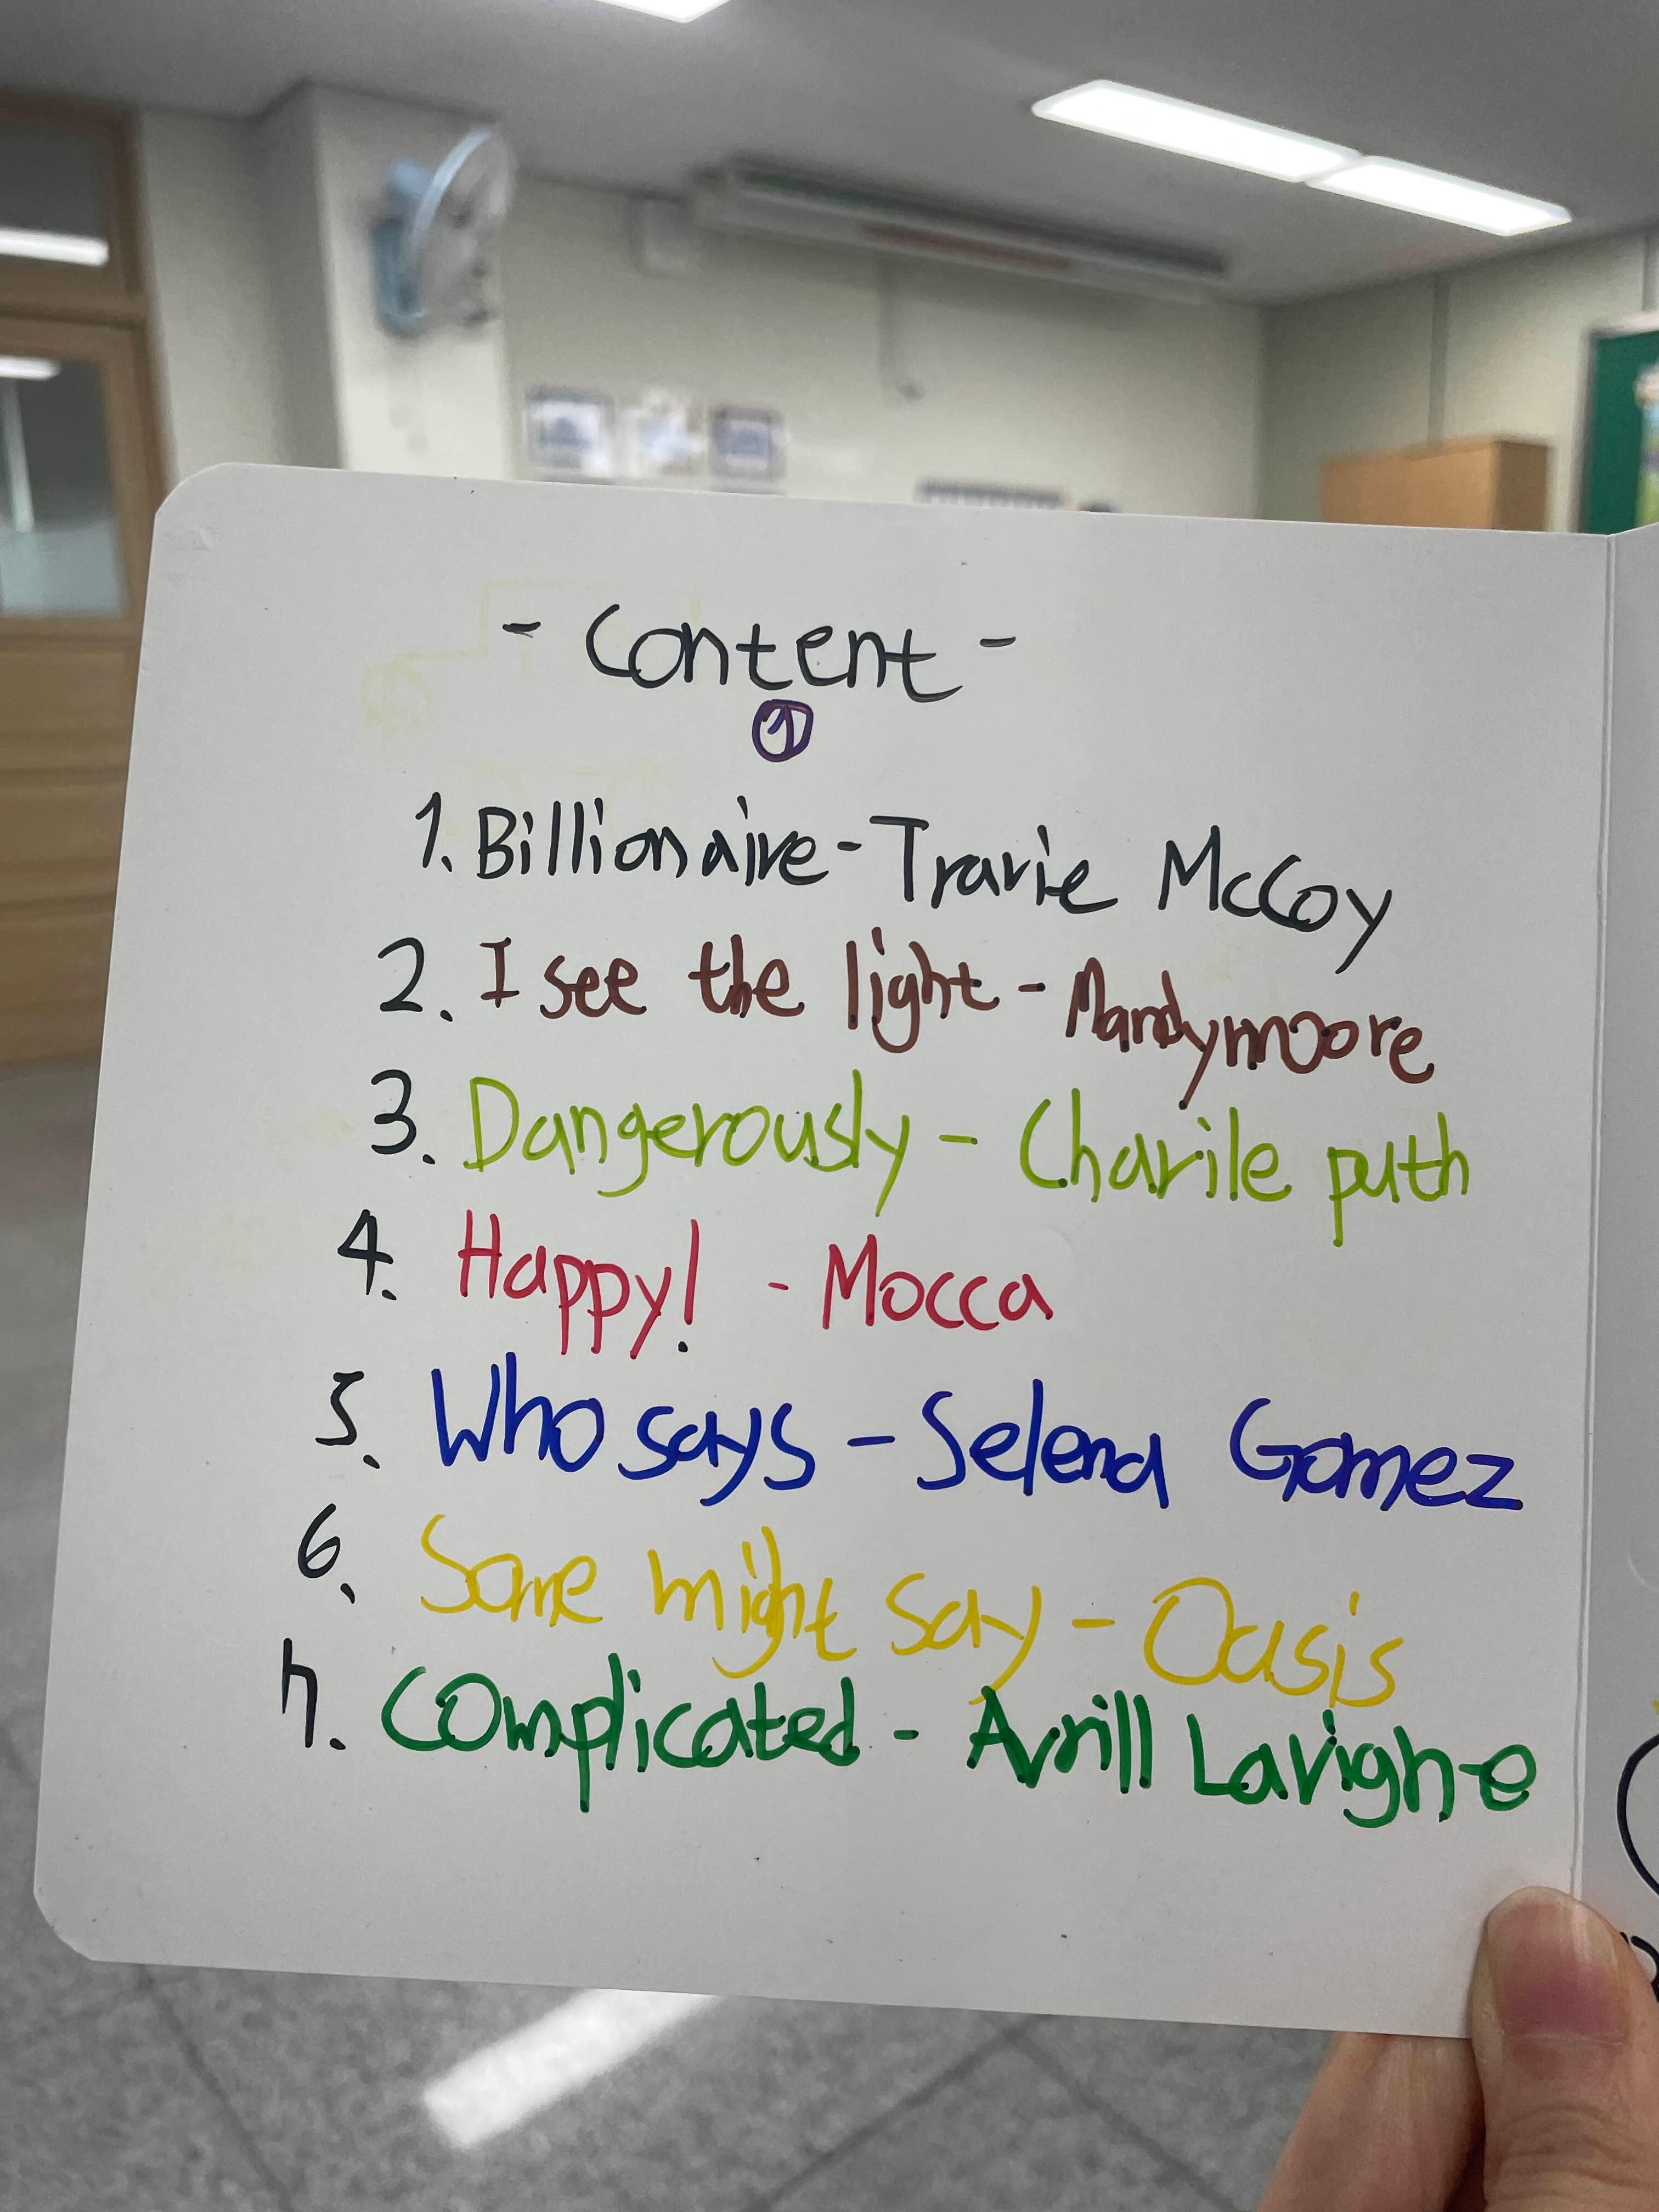 - Content -
①
1. Billionaire - Travie McCoy
2. I see the light - Mandymoore
3. Dangerously - Charile puth
4. Happy! - Mocca
5. Who says - Selena Gomez
6. Some might say - Oasis
7. Complicated - Avrill Lavighe